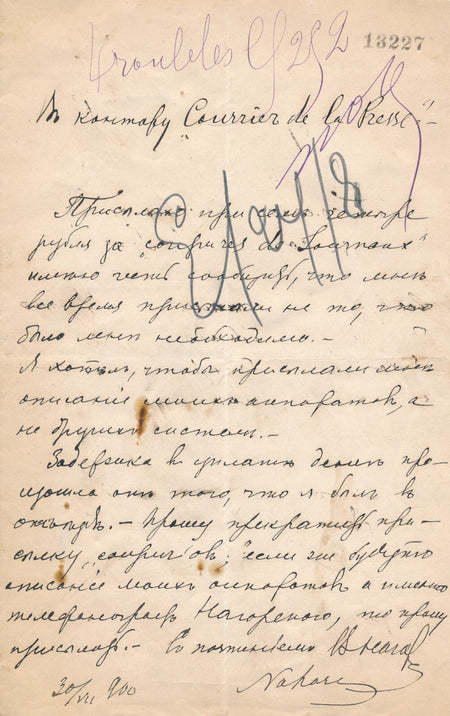 13227
Въ контору "Courrier de la Presse".-
Присылая при семъ четыре
рубля за "coupures de Journaux"
имею честь сообщить, что мнѣ
все время присылали не то, что
было мнѣ необходимо.-
Я хотѣлъ, чтобы присылали мнѣ
описанiе моихъ аппаратовъ, а
не другихъ системъ.-
Задержка в уплатѣ денегъ про-
изошла отъ того, что я былъ в
отъѣздѣ.- Прошу прекратить при-
сылку "coupur'овъ"; если же будутъ
описанiе моихъ аппаратовъ а именно
телефонографъ Нагорского, то прошу
присылать.- Съ почтенiемъ
30/VI 900